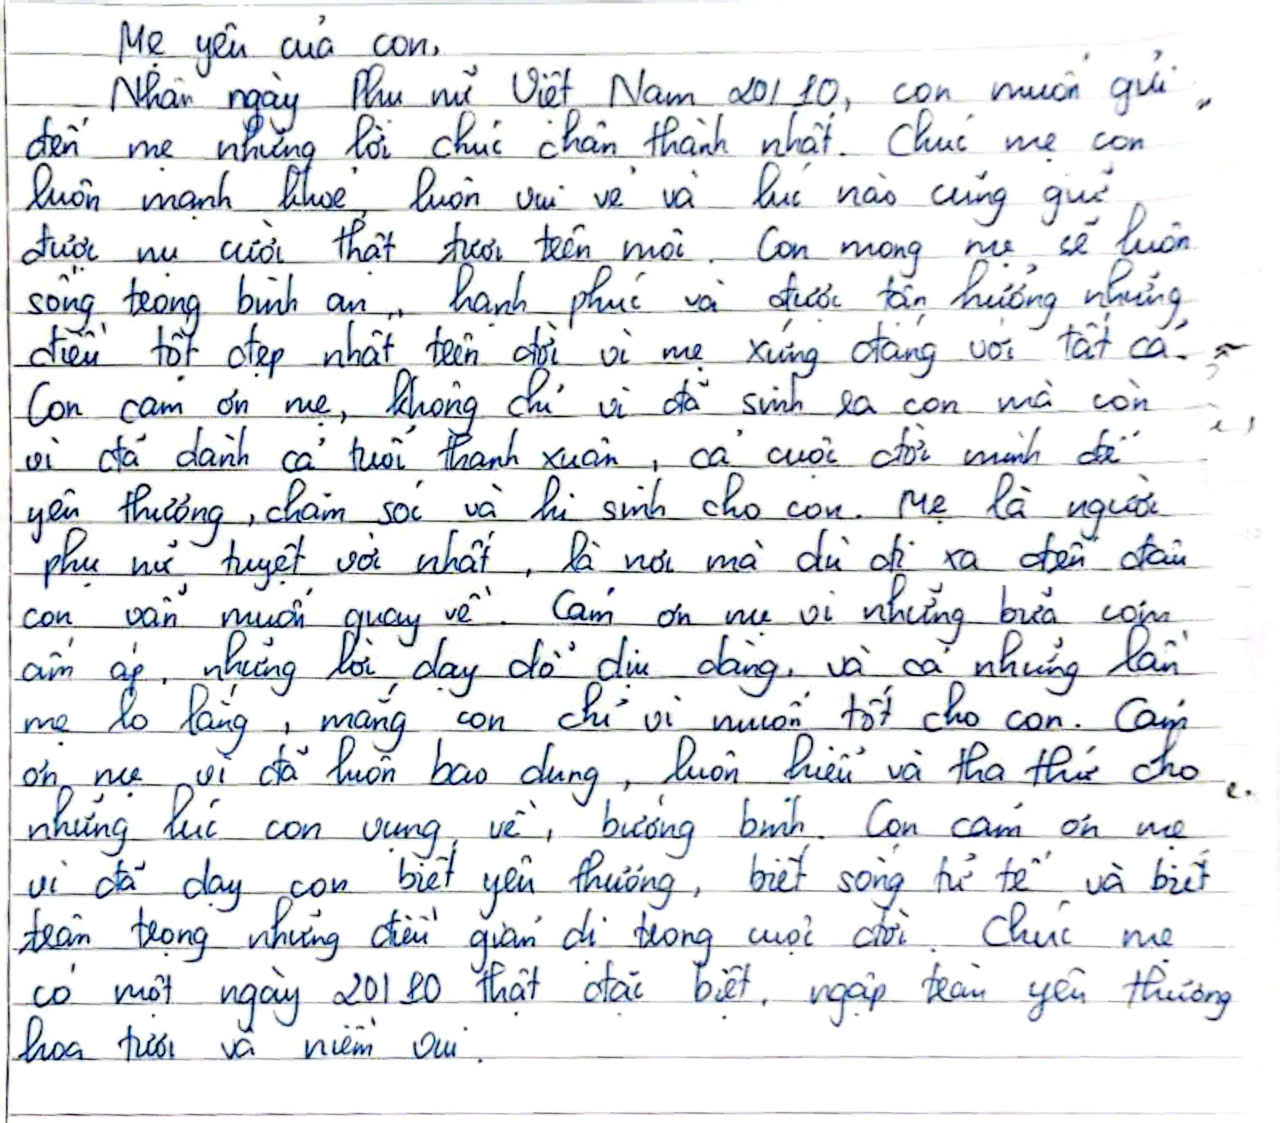 Mẹ yêu của con,
Nhân ngày Phụ nữ Việt Nam 20/10, con muốn gửi
đến mẹ những lời chúc chân thành nhất. Chúc mẹ con
luôn mạnh khoẻ, luôn vui vẻ và lúc nào cũng giữ
được nụ cười thật tươi trên môi. Con mong mẹ sẽ luôn
sống trong bình an, hạnh phúc và được tận hưởng những
điều tốt đẹp nhất trên đời vì mẹ xứng đáng với tất cả.
Con cảm ơn mẹ, không chỉ vì đã sinh ra con mà còn
vì đã dành cả tuổi thanh xuân, cả cuộc đời mình để
yêu thương, chăm sóc và hi sinh cho con. Mẹ là người
phụ nữ tuyệt vời nhất, là nơi mà dù đi xa đến đâu
con vẫn muốn quay về. Cảm ơn mẹ vì những bữa cơm
ấm áp, những lời dạy dỗ dịu dàng, và cả những lần
mẹ lo lắng, mắng con chỉ vì muốn tốt cho con. Cảm
ơn mẹ vì đã luôn bao dung, luôn hiểu và tha thứ cho
những lúc con vụng về, bướng bỉnh. Con cảm ơn mẹ
vì đã dạy con biết yêu thương, biết sống tử tế và biết
trân trọng những điều giản dị trong cuộc đời. Chúc mẹ
có một ngày 20/10 thật đặc biệt, ngập tràn yêu thương
hoa tươi và niềm vui.